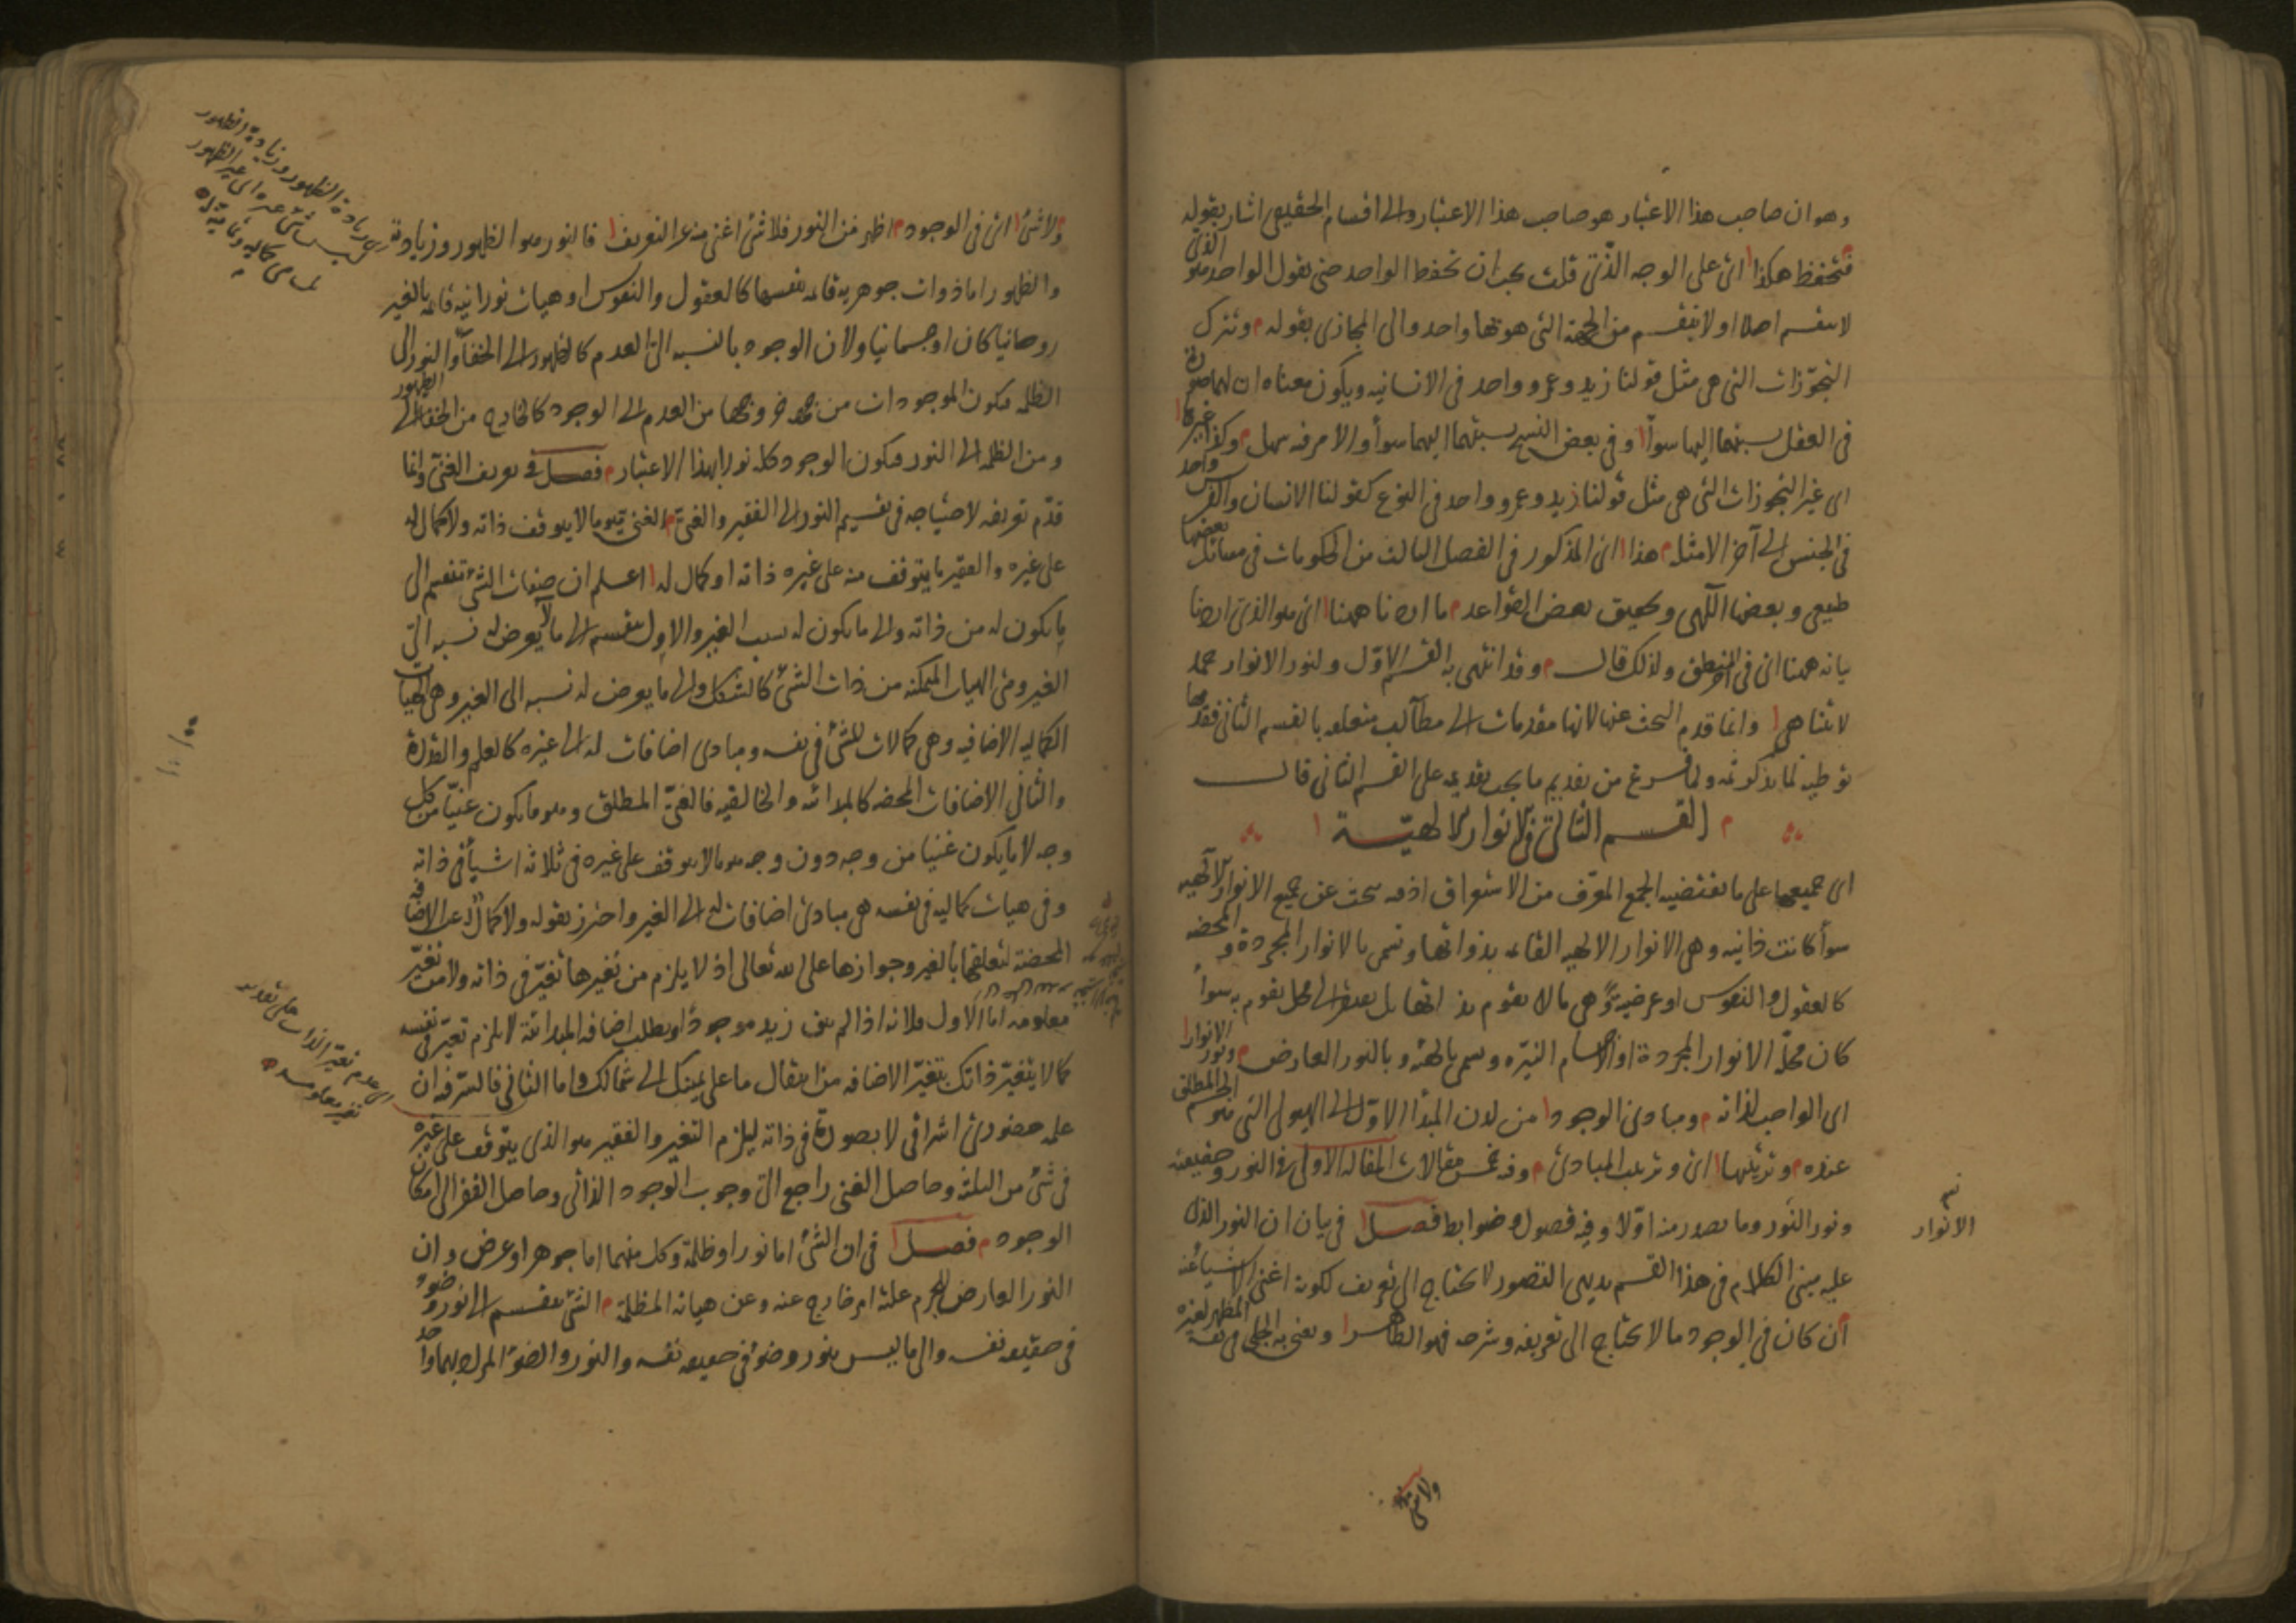 وهو ان صاحب هذا الاعتبار هو صاحب هذا الاعتبار والى اقسام الحقيقى اشار بقوله
فتحفظ هكذا اى على الوجه الذى قلت يجب ان تحفظ الواحد حتى يقول الواحد هو الذى
لا ينقسم اصلا او لا ينقسم من الجهة التى هو بها واحد والى المجازى بقوله م وتترك
التجوّزات التى هى مثل قولنا زيد وعمرو واحد فى الانسانيه ويكون معناه ان لهما صورة
فى العقل نسبتهما اليها سوآ وفى بعض النسخ نسبتهما اليهما سوآ والامر فيه سهل م وكذا غيرها
اى غير التجوزات التى هى مثل قولنا زيد وعمرو واحد فى النوع كقولنا الانسان والفرس واحد
فى الجنس الى آخر الامثله م هذا اى المذكور فى الفصل الثالث من الحكومات فى مسائل بعضها
طبيعى وبعضها الٓهى وتحقيق بعض القواعد م ما اردنا ههنا اى هو الذى اردنا
بيانه ههنا اى فى المنطق ولذلك قال م وقد انتهى به القسم الاوّل ولنور الانوار حمد
لا يتناهى وانما قدم البحث عنها لانها مقدمات الى مطالب متعلقه بالقسم الثانى فقدمها
توطية لما يذكر ثمه ولما فرغ من تقديم ما يجب تقديمه على القسم الثانى قال
م القسم الثانى فى الانوار الالهيّة
اى جميعها على ما يقتضيه الجمع المعرّف من الاستغراق اذ فيه يبحث عن جميع الانوار الالٓهيه
سوآ كانت ذاتيه وهى الانوار الالهيه القائمه بذواتها وتسمى بالانوار المجردة والمحضه
كالعقول والنفوس او عرضيه وهى ما لا يقوم بذاتها بل يفتقر الى محل يقوم به سوآ
كان محلّه الانوار المجردة او الاجسام النيّره وتسمى بالهيئه وبالنور العارض م ونور الانوار
اى الواجب لذاته م ومبادى الوجود من لدن المبدأ الاوّل الى الهيولى التى هو الجسم المطلق
عنده م وترتيبها اى وترتيب المبادى م وفيه خمس مقالات المقاله الاولى فى النور وحقيقته
ونور النور وما يصدر منه اوّلا وفيه فصول وضوابط فصل فى بيان ان النور الذى
عليه مبنى الكلام فى هذا القسم بديهى التصور لا يحتاج الى تعريف لكونه اغنى الاشيآ عنه
ان كان فى الوجود ما لا يحتاج الى تعريفه وشرحه فهو الظاهر ونعنى به الجلى فى نفسه المظهر لغيره
الانوار
ولا شئ
ولا شئ اى فى الوجود م اظهر من النور فلا شئ اغنى منه عن التعريف فالنور هو الظهور وزيادته
والظهور اما ذوات جوهريه قائمه بنفسها كالعقول والنفوس او هيات نورانيه قائمه بالغير
روحانيا كان او جسمانيا ولان الوجود بالنسبه الى العدم كالظهور الى الخفآ والنور الى
الظلمه فيكون الموجودات من جهة خروجها من العدم الى الوجود كالخارج من الخفآ الى الظهور
ومن الظلمه الى النور فيكون الوجود كله نورا بهذا الاعتبار م فصل فى تعريف الغنى وانما
قدّم تعريفه لاحتياجه فى تقسيم النور الى الفقير والغنى م الغنى هو ما لا يتوقف ذاته ولا كمال له
على غيره والفقير ما يتوقف منه على غيره ذاته او كمال له اعلم ان صفات الشئ تنقسم الى
ما يكون له من ذاته والى ما يكون له بسبب الغير والاول ينقسم الى ما لا يعرض له نسبه الى
الغير وهى الهيات المتمكنه من ذات الشئ كالشكل والى ما يعرض له نسبه الى الغير وهى الهيات
الكماليه الاضافيه وهى كمالات للشئ فى نفسه ومبادى اضافات له الى غيره كالعلم والقدرة
والثانى الاضافات المحضه كالمبدائيه والخالقيه فالغنىّ المطلق وهو ما يكون غنيّا من كل
وجه لا ما يكون غنيا من وجه دون وجه هو ما لا يتوقف على غيره فى ثلاثه اشيآ فى ذاته
وفى هيات كماليه فى نفسه هى مبادى اضافات له الى الغير واحترز بقوله ولا كمال له عن الاضافه
المحضة لتعلقها بالغير وجوازها على الله تعالى اذ لا يلزم من تغيرها تغيّر فى ذاته ولا من تغيّر
معلومه اما الاول فلانه اذا لم يبق زيد موجودا وبطلت اضافه المبدائية لا يلزم تغيّر فى نفسه
كما لا يتغيّر ذاتك بتغيّر الاضافه من انتقال ما على يمينك الى شمالك واما الثانى فالسّر فيه ان
علمه حضورىّ اشراقى لا بصورة فى ذاته ليلزم التغير والفقير هو الذى يتوقف على غيره
فى شئ من الثلثه وحاصل الغنى راجع الى وجوب الوجود الذاتى وحاصل الفقر الى امكان
الوجود م فصل فى ان الشئ اما نور او ظلمة وكل منهما اما جوهر او عرض وان
النور العارض للجرم علته امر خارج عنه وعن هياته المظلمة م الشئ ينقسم الى نور وضوء
فى حقيقه نفسه والى ما ليس بنور وضوء فى حقيقه نفسه والنور والضوء المراد بهما واحد